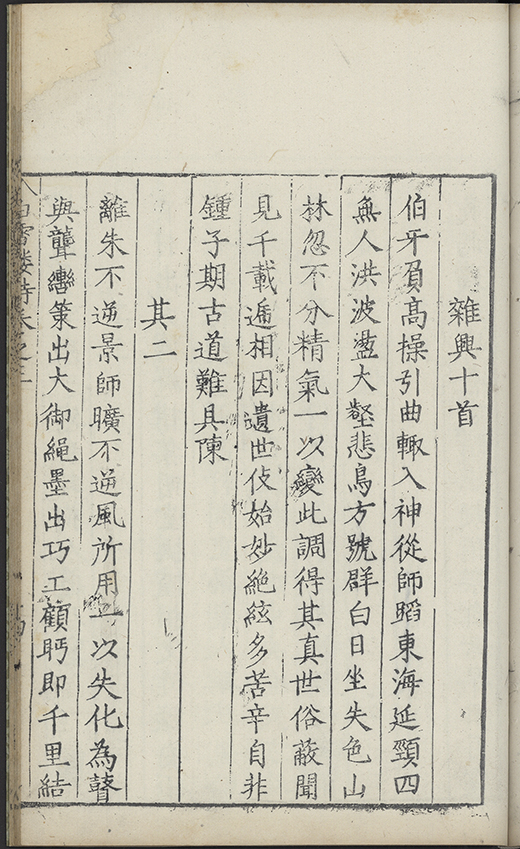 雜興十首
伯牙負高操引曲輙入神從師蹈東海延頸四
無人洪波盪大壑悲鳥方號群白日坐失色山
林忽不分精氣一以變此調得其真世俗蔽聞
見千載遞相因遺世伎始妙絶絃多苦辛自非
鍾子期古道難具陳
其二
離朱不逆景師曠不逆風所用一以失化為瞽
與聾轡策出大御繩墨出巧工顧眄即千里結
白雪樓詩卷之